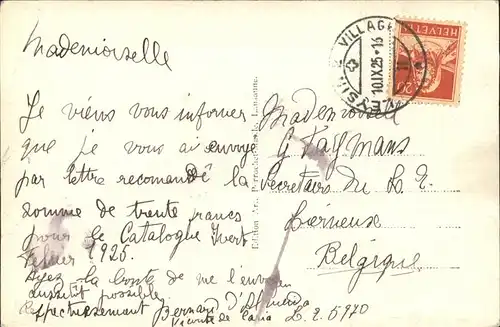 Mademoiselle
Je viens vous informer
que je vous ai envoyé
par lettre recomandé la
somme de trente francs
pour le Catalogue Yvert
1926.
Ayez la bonté de me l'envoyer
aussitôt possible.
Respectueusement Bernard d'Almeida
Vicomte de L. 2. 5970
Mademoiselle
G Taymans
Secretaire du L. E.
Lierneux
Belgique
VILLAGE
10.IX.25-16
HELVETIA
20